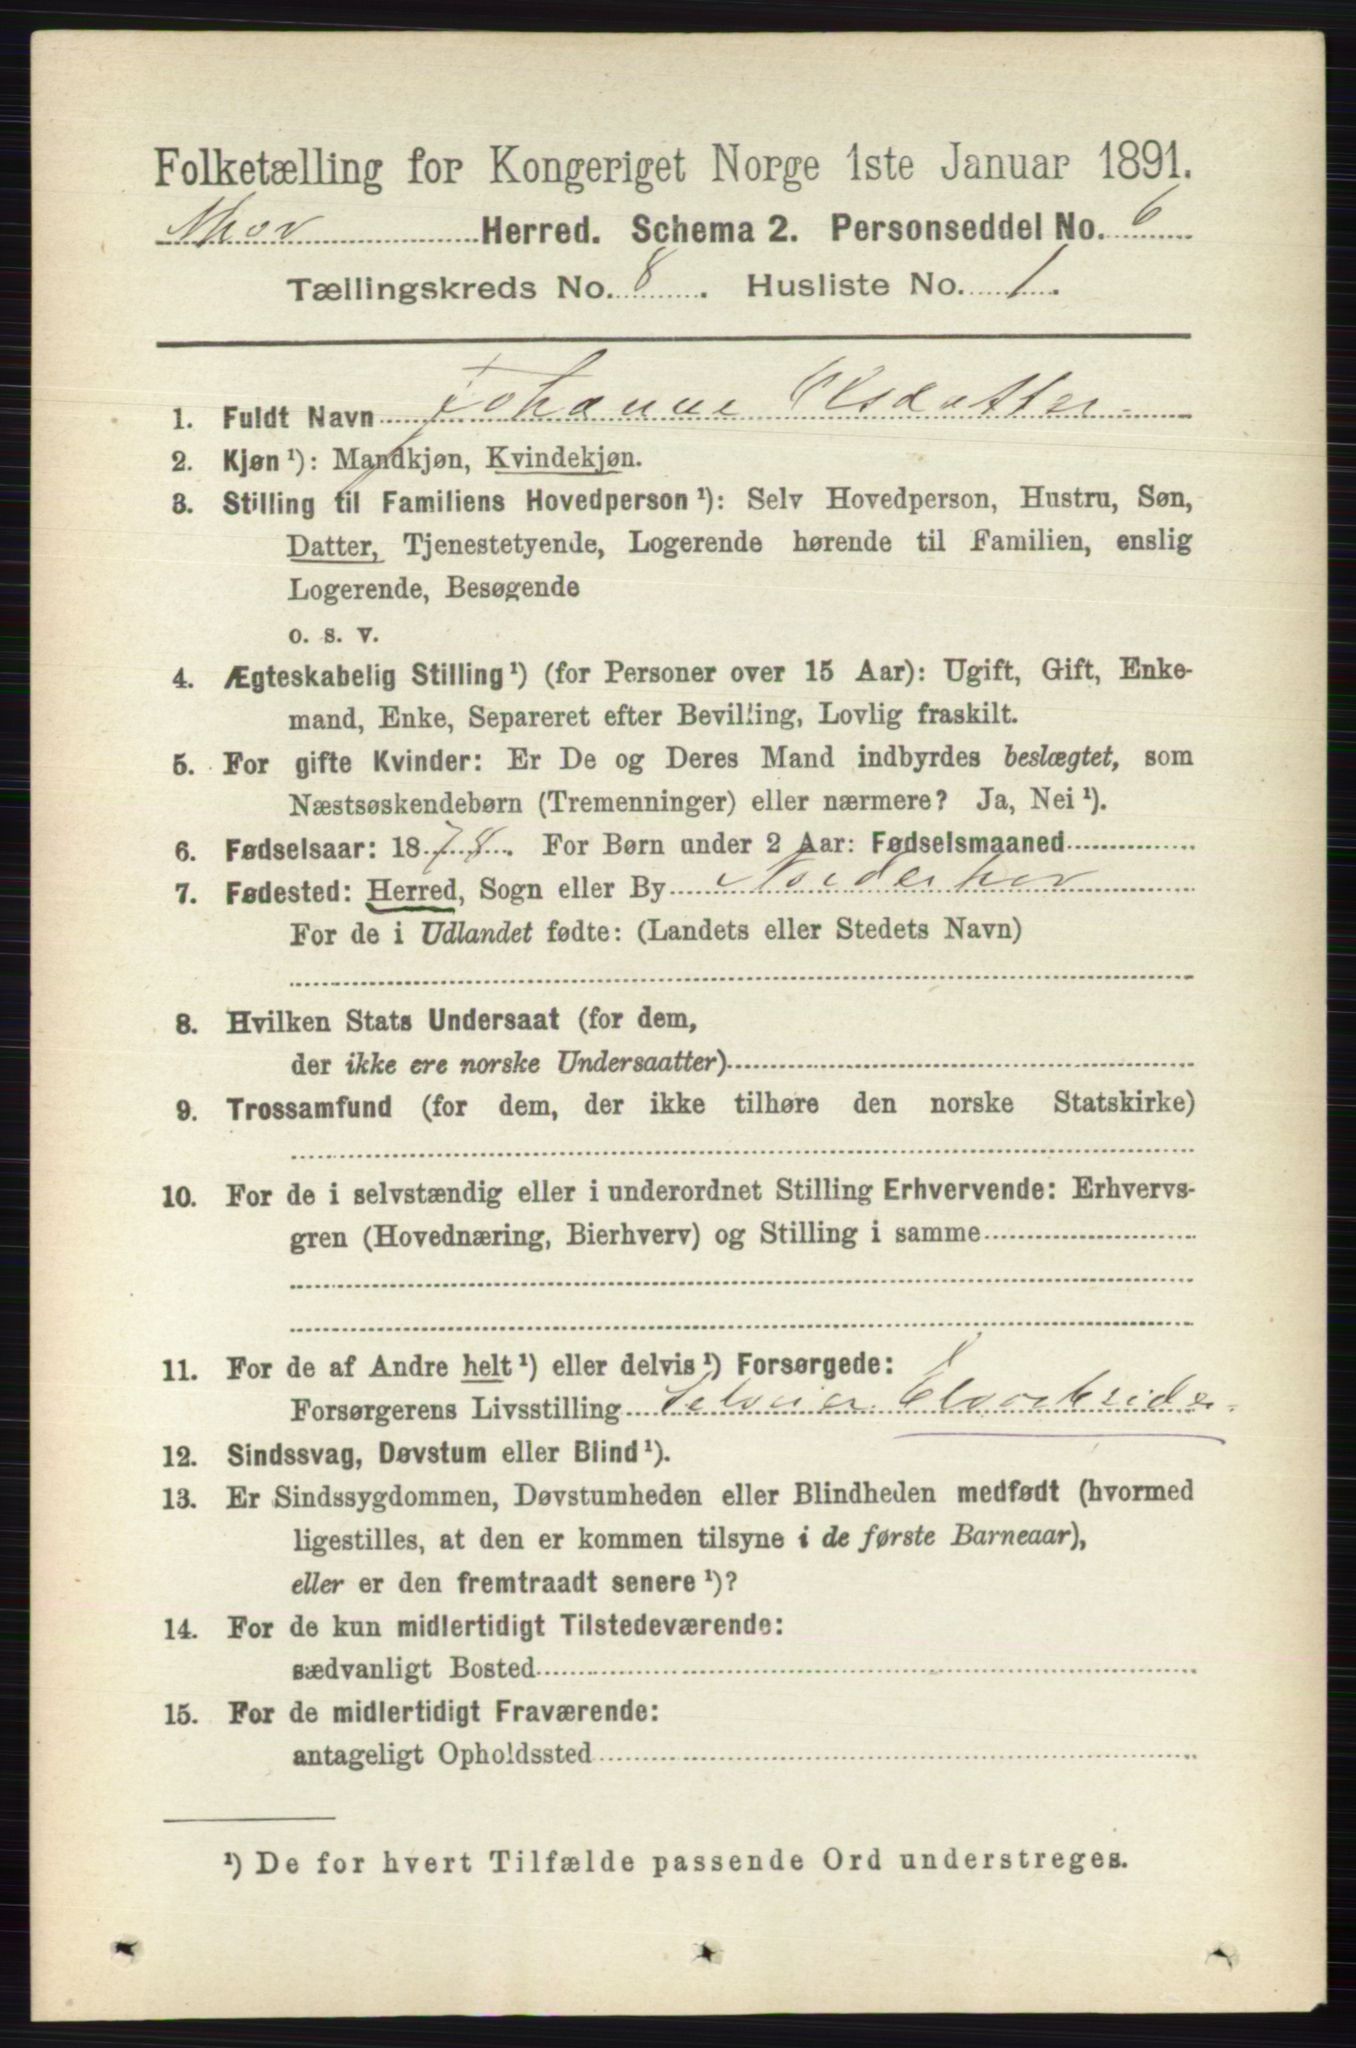 Folketælling for Kongeriget Norge 1ste Januar 1891.
Herred. Schema 2. Personseddel No. 6
Tællingskreds No. 8. Husliste No. 1.
1. Fuldt Navn Johanne Olsdatter
2. Kjøn ¹): Mandkjøn, Kvindekjøn.
3. Stilling til Familiens Hovedperson ¹): Selv Hovedperson, Hustru, Søn,
Datter, Tjenestetyende, Logerende hørende til Familien, enslig
Logerende, Besøgende
o. s. v.
4. Ægteskabelig Stilling ¹) (for Personer over 15 Aar): Ugift, Gift, Enke-
mand, Enke, Separeret efter Bevilling, Lovlig fraskilt.
5. For gifte Kvinder: Er De og Deres Mand indbyrdes beslægtet, som
Næstsøskendebørn (Tremenninger) eller nærmere? Ja, Nei ¹).
6. Fødselsaar: 1878. For Børn under 2 Aar: Fødselsmaaned
7. Fødested: Herred, Sogn eller By Norderhov
For de i Udlandet fødte: (Landets eller Stedets Navn)
8. Hvilken Stats Undersaat (for dem,
der ikke ere norske Undersaatter)
9. Trossamfund (for dem, der ikke tilhøre den norske Statskirke)
10. For de i selvstændig eller i underordnet Stilling Erhvervende: Erhvervs-
gren (Hovednæring, Bierhverv) og Stilling i samme
11. For de af Andre helt ¹) eller delvis ¹) Forsørgede:
Forsørgerens Livsstilling Selveier
12. Sindssvag, Døvstum eller Blind ¹).
13. Er Sindssygdommen, Døvstumheden eller Blindheden medfødt (hvormed
ligestilles, at den er kommen tilsyne i de første Barneaar),
eller er den fremtraadt senere ¹)?
14. For de kun midlertidigt Tilstedeværende:
sædvanligt Bosted
15. For de midlertidigt Fraværende:
antageligt Opholdssted
¹) De for hvert Tilfælde passende Ord understreges.